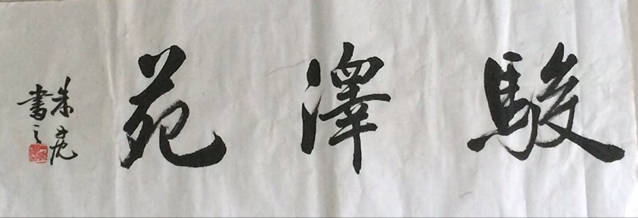 駿澤苑
朱虎
書之